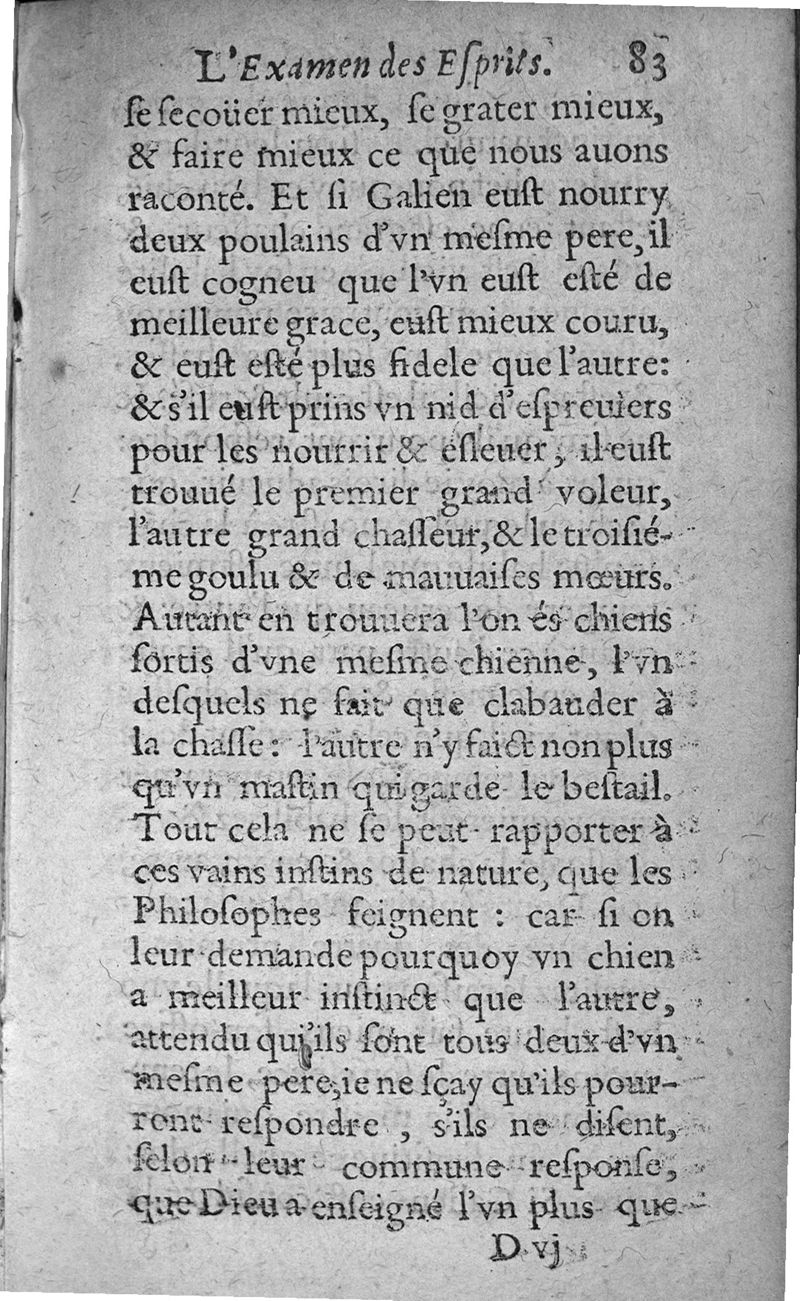 L'Examen des Eſprits. 83
ſe ſecoüer mieux, ſe grater mieux,
& faire mieux ce que nous auons
raconté. Et ſi Galien euſt nourry
deux poulains d'vn meſme pere, il
euſt cogneu que l'vn euſt eſté de
meilleure grace, euſt mieux couru,
& euſt eſté plus fidele que l'autre:
& s'il euſt prins vn nid d'eſpreuiers
pour les nourrir & eſleuer, il euſt
trouué le premier grand voleur,
l'autre grand chaſſeur, & le troiſié-
me goulu & de mauuaiſes mœurs.
Autant en trouuera l'on és chiens
ſortis d'vne meſme chienne, l'vn
deſquels ne fait que clabauder à
la chaſſe: l'autre n'y faict non plus
qu'vn maſtin qui garde le beſtail.
Tout cela ne ſe peut rapporter à
ces vains inſtins de nature, que les
Philoſophes feignent : car ſi on
leur demande pourquoy vn chien
a meilleur inſtinct que l'autre,
attendu qu'ils ſont tous deux d'vn
meſme pere, ie ne ſçay qu'ils pour-
ront reſpondre , s'ils ne diſent,
ſelon leur commune reſponſe,
que Dieu a enſeigné l'vn plus que
D vj